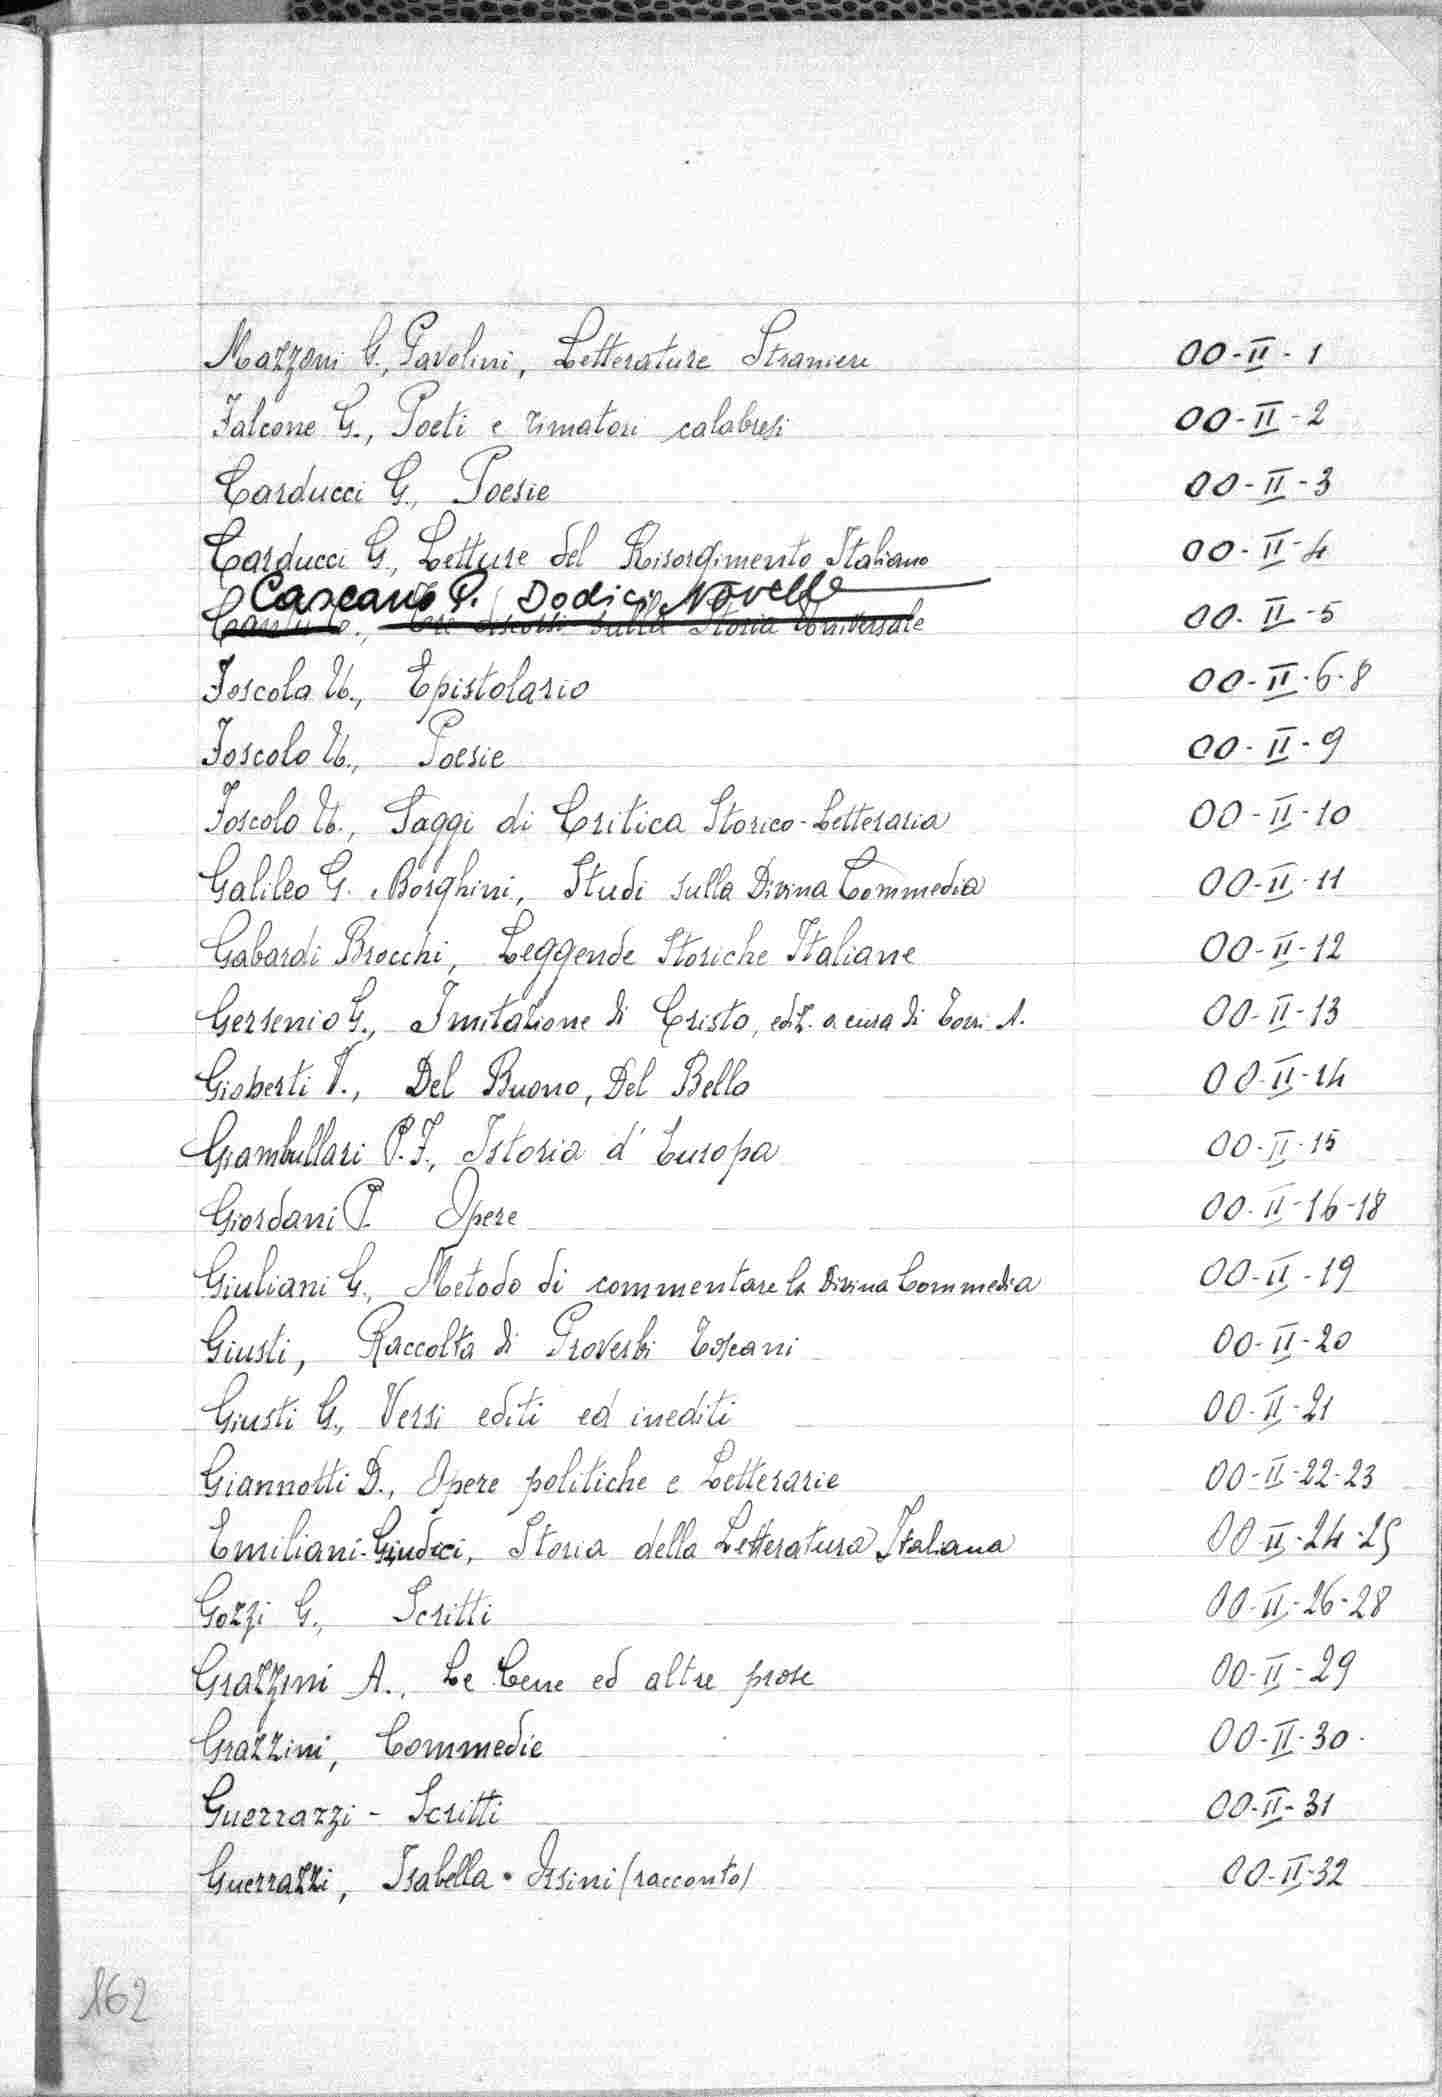 Mazzoni G., Pavolini, Letterature Straniere 00-II-1
Falcone G., Poeti e rimatori calabresi 00-II-2
Carducci G., Poesie 00-II-3
Carducci G., Letture del Risorgimento Italiano 00-II-4
Cascano P. Dodici Novelle
Cantù C., Tre discorsi sulla Storia Universale 00-II-5
Foscola U., Epistolario 00-II-6-8
Foscolo U., Poesie 00-II-9
Foscolo U., Saggi di Critica Storico-Letteraria 00-II-10
Galileo G. Borghini, Studi sulla Divina Commedia 00-II-11
Gabardi Brocchi, Leggende Storiche Italiane 00-II-12
Gersenio G., Imitazione di Cristo, ediz. a cura di Torri A. 00-II-13
Gioberti V., Del Buono, Del Bello 00-II-14
Giambullari P.F., Istoria d'Europa 00-II-15
Giordani P. Opere 00-II-16-18
Giuliani G., Metodo di commentare la Divina Commedia 00-II-19
Giusti, Raccolta di Proverbi Toscani 00-II-20
Giusti G., Versi editi ed inediti 00-II-21
Giannotti D., Opere politiche e Letterarie 00-II-22-23
Emiliani-Giudici, Storia della Letteratura Italiana 00-II-24-25
Gozzi G., Scritti 00-II-26-28
Grazzini A., Le Cene ed altre prose 00-II-29
Grazzini, Commedie 00-II-30
Guerrazzi - Scritti 00-II-31
Guerrazzi, Isabella Orsini (racconto) 00-II-32
162